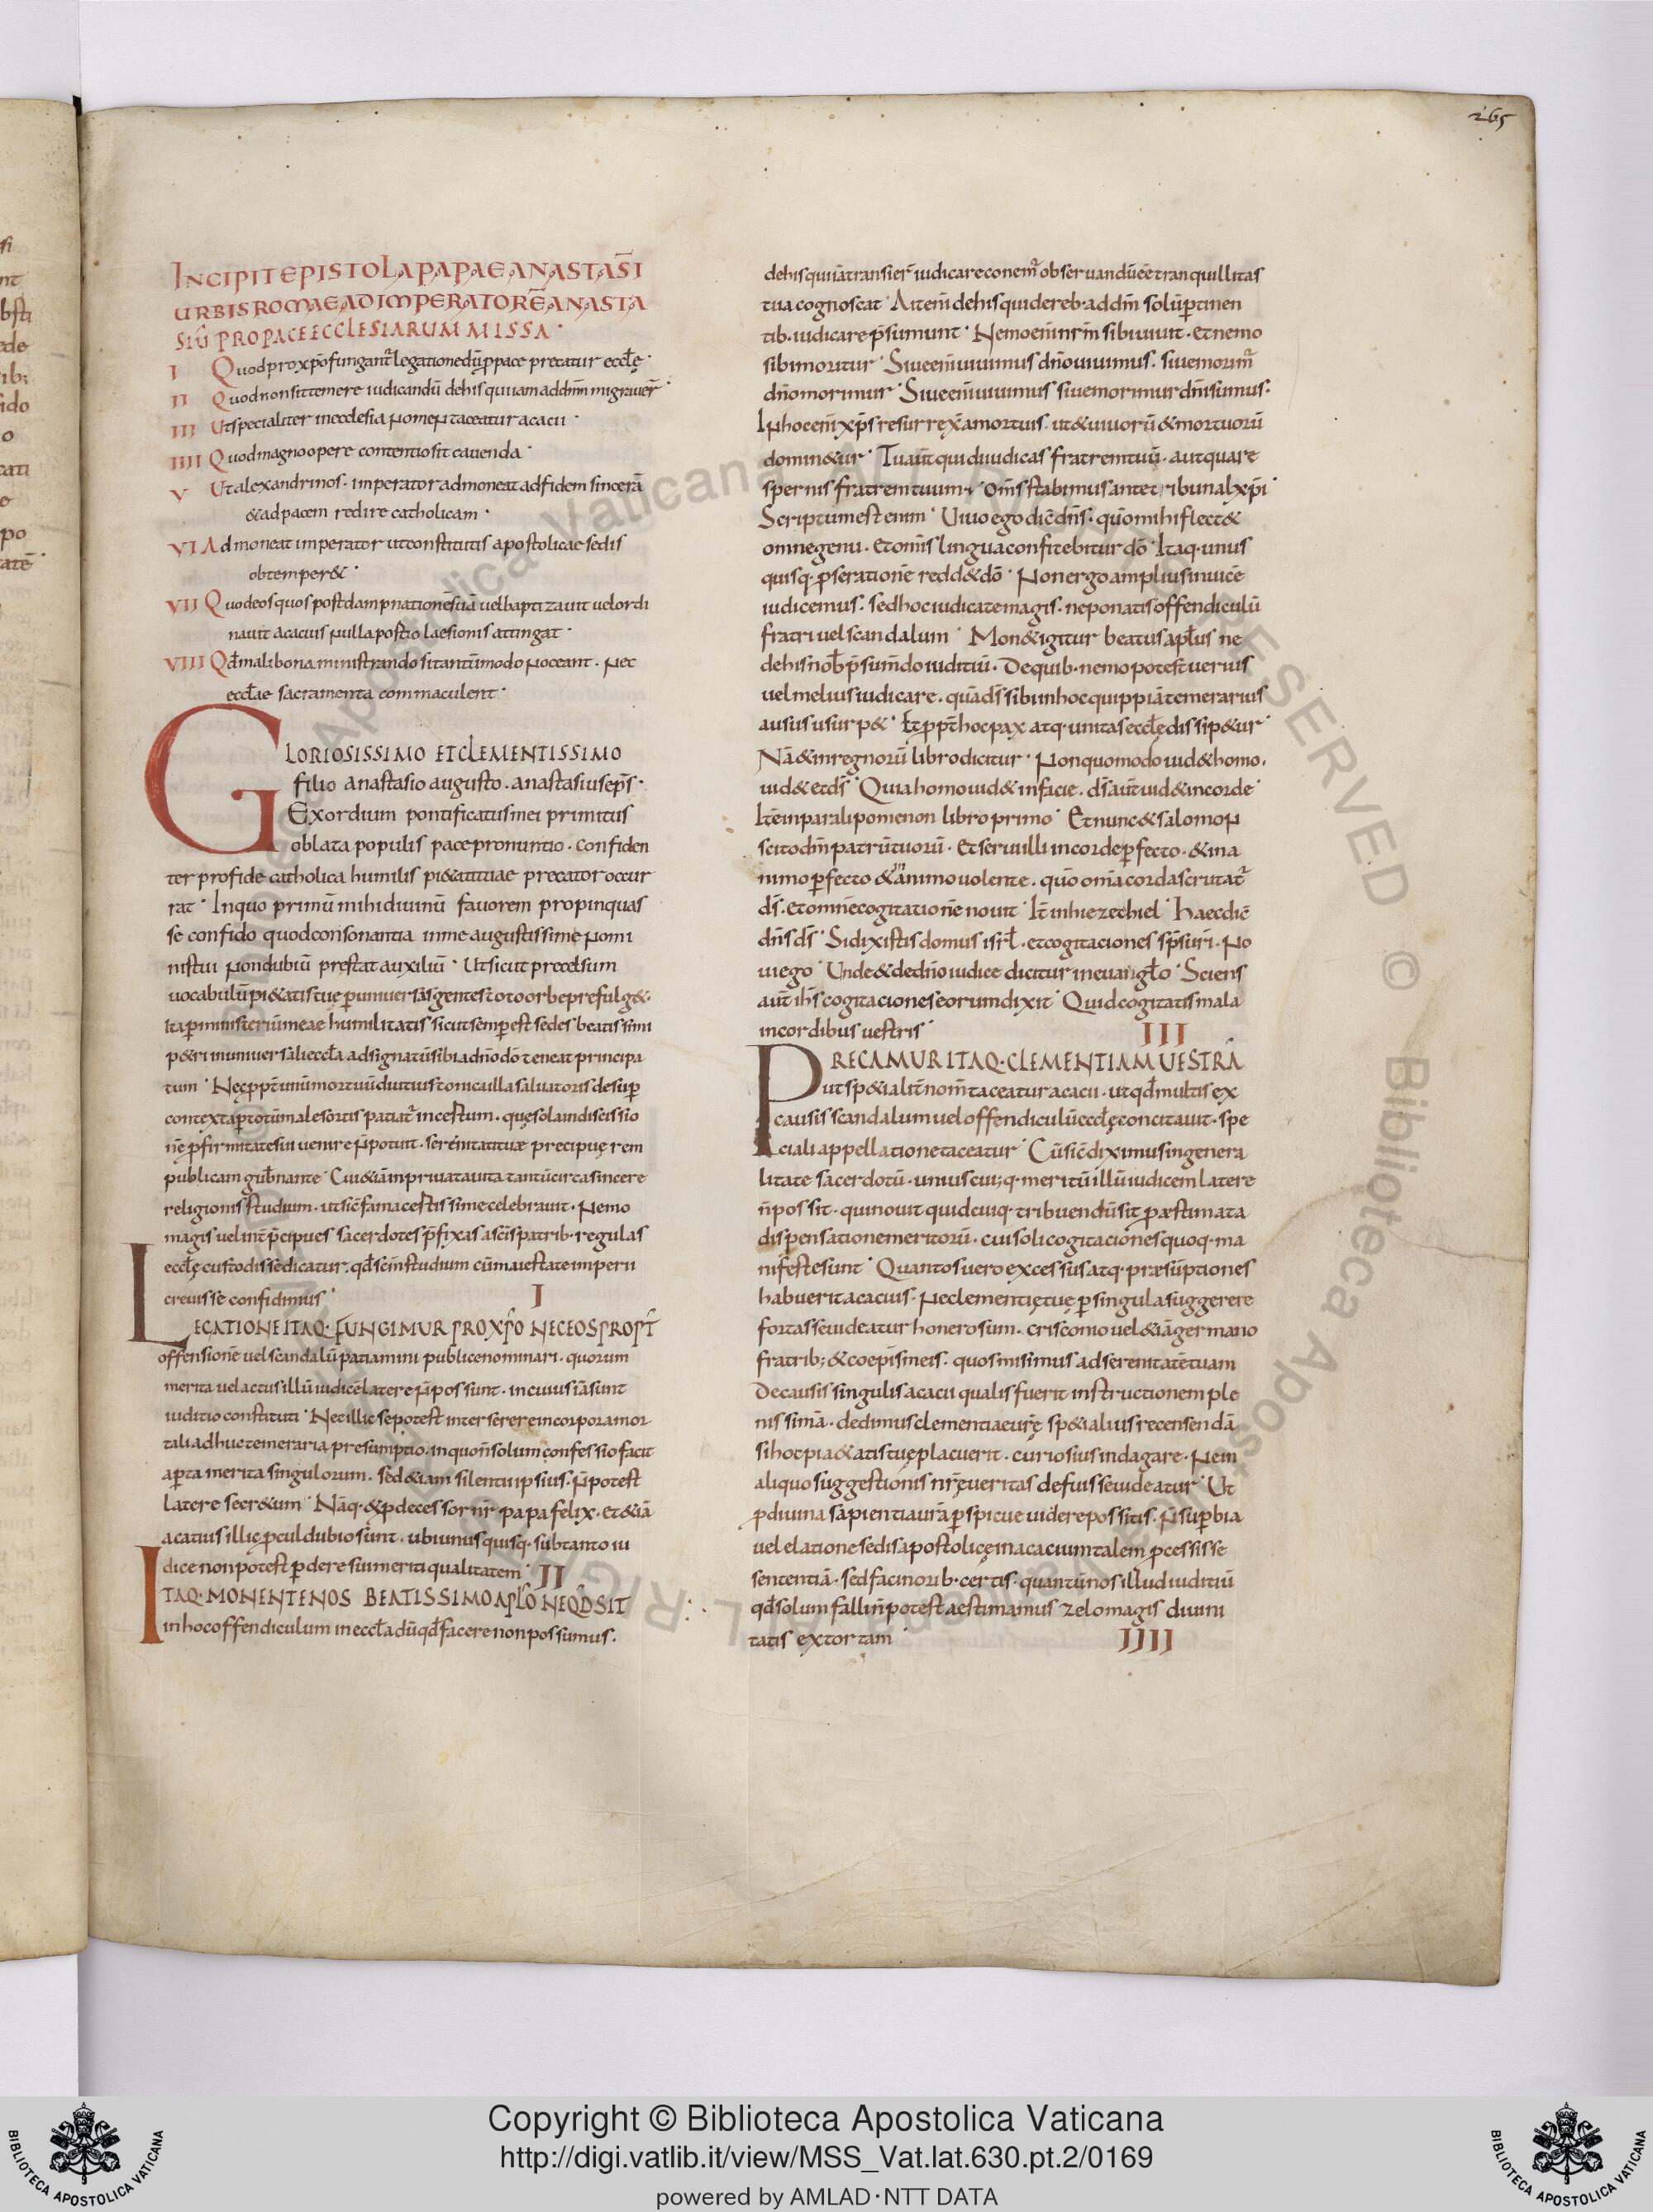 265
INCIPIT EPISTOLA PAPAE ANASTASI
URBIS ROMAE AD IMPERATORĒ ANASTA
SIŪ PRO PACE ECCLESIARUM MISSA·
I Quod pro xp̄o fungant̄ legatione dū p̄ pace precatur eccl̄ę·
II Quod non sit temere iudicandū de his qui iam ad dn̄m migraver̄·
III Ut specialiter in ecclesia nomen taceatur acacii·
IIII Quod magnoopere contentio sit cavenda·
V Ut alexandrinos· imperator admoneat ad fidem sincerā
& ad pacem redire catholicam·
VI Admoneat imperator ut constitutis apostolicae sedis
obtemper&·
VII Quod eos quos post dampnationē suā vel baptizavit vel ordi
navit acacius nulla portio laesionis attingat·
VIII Qd̄ mali bona ministrando si tantūmodo noceant· nec
eccl̄ae sacramenta commaculent·
GLORIOSISSIMO ET CLEMENTISSIMO
filio anastasio augusto· anastasius ep̄s·
Exordium pontificatus mei primitus
oblata populis pace pronuntio· confiden
ter pro fide catholica humilis pi&ati tuae precator occur
rat· In quo primū mihi divinū favorem propinquas
se confido quod consonantia in me augustissime nomi
nis tui non dubiū prestat auxiliū· Ut sicut precelsum
vocabulū pi&atis tuę p̄ universas gentes toto orbe prefulg&·
ita p̄ ministeriū meae humilitatis sicut semp̄ est sedes beatissimi
p&ri in universali eccl̄a adsignatū sibi a dn̄o dō teneat principa
tum· Nec propt̄ unū mortuū diutius tonica illa salvatoris desup̄
contexta p̄ totū male sortis patiat̄ incestum· quę sola indiscissio
nē p̄ firmitate sui venire n̄ potuit· serenitati tuae precipuę rem
publicam gub̄nante· Cui &iā in privata vita tantū circa sincere
religionis studium· ut sic̄ fama cestissime celebravit· nemo
magis vel int̄ p̄cipues sacerdotes p̄fixas a sc̄is patrib· regulas
eccl̄ę custodisse dicatur· qd̄ sc̄m studium cū maiestate imperii
crevisse confidimus· I
LECATIONE ITAQ· FUNGIMUR PRO XP̄O NEC EOS PROPT̄
offensionē vel scandalū patiamini publice nominari· quorum
merita vel actus illū iudicē latere n̄ possunt· in cuius iā sunt
iuditio constituti· Nec illic se potest inserere incorpora mor
tali adhuc temeraria presumptio· in quo n̄ solum confessio facit
ap̄ta merita singulorum· sed &iam silentii ipsius· n̄ potest
latere secr&um· Nāq· & p̄decessor nr̄ papa felix· et &iā
acatius illic p̄cul dubio sunt· ubi unusquisq· sub tanto iu
dice non potest p̄dere sui meriti qualitatem· II
ITAQ· MONENTE NOS BEATISSIMO APL̄O NE QD̄ SIT
in hoc offendiculum in eccl̄a dū qd̄ facere non possumus·
de his qui iā transier̄ iudicare conem̄ observandū ē tranquillitas
tua cognoscat· Ait enī de his qui de reb· ad dn̄m solū p̄tinen
tib· iudicare p̄sumunt· Nemo enī nr̄m sibi vivit· et nemo
sibi moritur· Sive enī vivimus dn̄o vivimus· sive morim̄
dn̄o morimur· Sive enī vivimus sive morimur dn̄i sumus·
In hoc enī xp̄s resurrex̄ a mortuis· ut & vivorū & mortuorū
domin&ur· Tu aūt quid iudicas fratrem tuū· aut quare
spernis fratrem tuum· Om̄s stabimus ante tribunal xp̄i·
Scriptum est enim· Vivo ego dic̄ dn̄s· quō mihi flect&
omne genu· et om̄s lingua confitebitur dō· Itaq· unus
quisq· p̄ se rationē redd& dō· Non ergo amplius invicē
iudicemus· sed hoc iudicate magis· ne ponatis offendiculū
fratri vel scandalum· Mon& igitur beatus apl̄us ne
de his nob̄ p̄sumdo iuditiū· De quib· nemo potest verius
vel melius iudicare· quā ds̄ sibi in hoc quippiā temerarius
ausus usurp&· Et propt̄ hoc pax atq· unitas eccl̄ę dissip&ur·
Nā & in regnorū libro dicitur· Non quomodo vid& homo·
vid& et ds̄· Quia homo vid& in facie· ds̄ aūt vid& in corde·
Itē in paralipomenon libro primo· Et nunc & salomon
scito dm̄ patrū tuorū· et servi illi in corde p̄fecto· & in a
nimo p̄fecto & in animo volente· quō omīa corda scrutat̄
ds̄· et omnē cogitationē novit· It̄ in hiezechiel· Haec dic̄
dn̄s ds̄· Si dixistis domus isrl̄· et cogitaciones sp̄s vr̄i· no
vi ego· Unde & de dn̄o iudice dicitur in evangl̄o· Sciens
aūt ihs̄ cogitaciones eorum dixit· Quid cogitatis mala
in cordibus vestris· III
PRECAMUR ITAQ· CLEMENTIAM VESTRĀ
ut sp&ialit̄ nom̄ taceatur acacii· ut qd̄ multis ex
causis scandalum vel offendiculū eccl̄ę concitavit· spe
ciali appellatione taceatur· Cū sic̄ diximus in genera
litate sacerdotū· unius cui;q· meritū illū iudicem latere
n̄ possit· qui novit quid cuiq· tribuendū sit p̄ aestimata
dispensatione meritorū· cui soli cogitaciones quoq· ma
nifeste sunt· Quantos vero excessus atq· praesūptiones
habuerit acacius· ne clementię tuę p̄ singula suggerere
fortasse videatur honerosum· criscomo vel &iā germano
fratrib; & coep̄is meis· quos misimus ad serenitatē tuam
De causis singulis acacii qualis fuerit instructionem ple
nissimā· dedimus clementiae vr̄ę sp&ialius recensendā
si hoc pia&atis tuę placuerit· curiosius indagare· nem
aliquo suggestionis nr̄ę veritas defuisse videatur· Ut
p̄ divina sapientia vr̄ā p̄spicue videre possitis· n̄ sup̄bia
vel elatione sedis apostolicę in acacium talem p̄cessisse
sententiā· sed facinorib· certis· quantū nos illud iuditiū
qd̄ solum falli n̄ potest aestimamus zelo magis divini
tatis extortam· IIII
Copyright © Biblioteca Apostolica Vaticana
http://digi.vatlib.it/view/MSS_Vat.lat.630.pt.2/0169
powered by AMLAD·NTT DATA
BIBLIOTECA APOSTOLICA VATICANA
BIBLIOTECA APOSTOLICA VATICANA